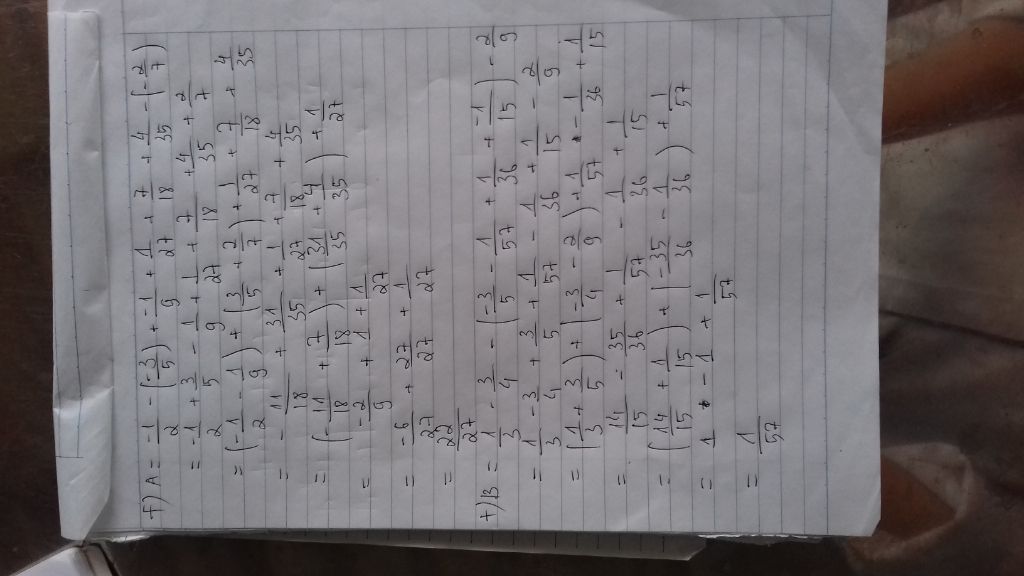 +) A = -1/2 - (-3/5) + -1/9 + 1/27 + 7/18 + 4/35 - (-2/7)
= -1/2 + 3/5 - 1/9 + 1/27 + 7/18 + 4/35 + 2/7
= (-1/2 - 1/9) + (3/5 + 2/7) + 1/27 + 7/18 + 4/35
= -11/18 + 31/35 + 1/27 + 7/18 + 4/35
= (-11/18 + 7/18) + (31/35 + 4/35) + 1/27
= -2/9 + 1 + 1/27
= -6/27 + 27/27 + 1/27
= 22/27
+) B = 1/3 - 3/4 - (-3/5 - 1/57 + 1/36 + -1/15) - 2/9
= 1/3 - 3/4 + 3/5 + 1/57 - 1/36 + 1/15 - 2/9
= (1/3 + 3/5) + (-3/4 - 2/9) + 1/57 - 1/36 + 1/15
= 14/15 - 35/36 + 1/57 - 1/36 + 1/15
= (14/15 + 1/15) + (-35/36 - 1/36) + 1/57
= 1 - 1 + 1/57
= 1/57